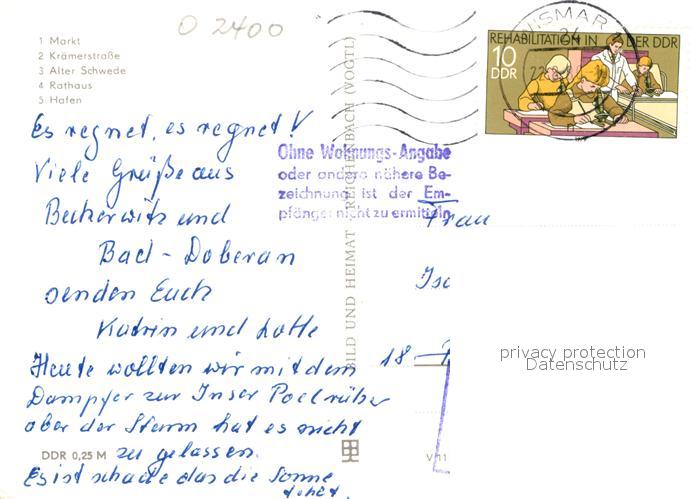 O 2400
1 Markt
2 Krämerstraße
3 Alter Schwede
4 Rathaus
5 Hafen
WISMAR
REHABILITATION IN DER DDR
10
DDR
Es regnet, es regnet!
Viele Grüße aus
Beckerwitz und
Bad-Doberan
senden Euch
Katrin und Lotte
Heute wollten wir mit dem
Dampfer zur Insel Poel rüber
aber der Sturm hat es nicht
zu gelassen.
Es ist schade das die Sonne
fehlt.
DDR 0,25 M
BILD UND HEIMAT REICHENBACH (VOGTL)
Ohne Wohnungs-Angabe
oder andere nähere Be-
zeichnung ist der Em-
pfänger nicht zu ermitteln
Frau
18
V 11
privacy protection
Datenschutz